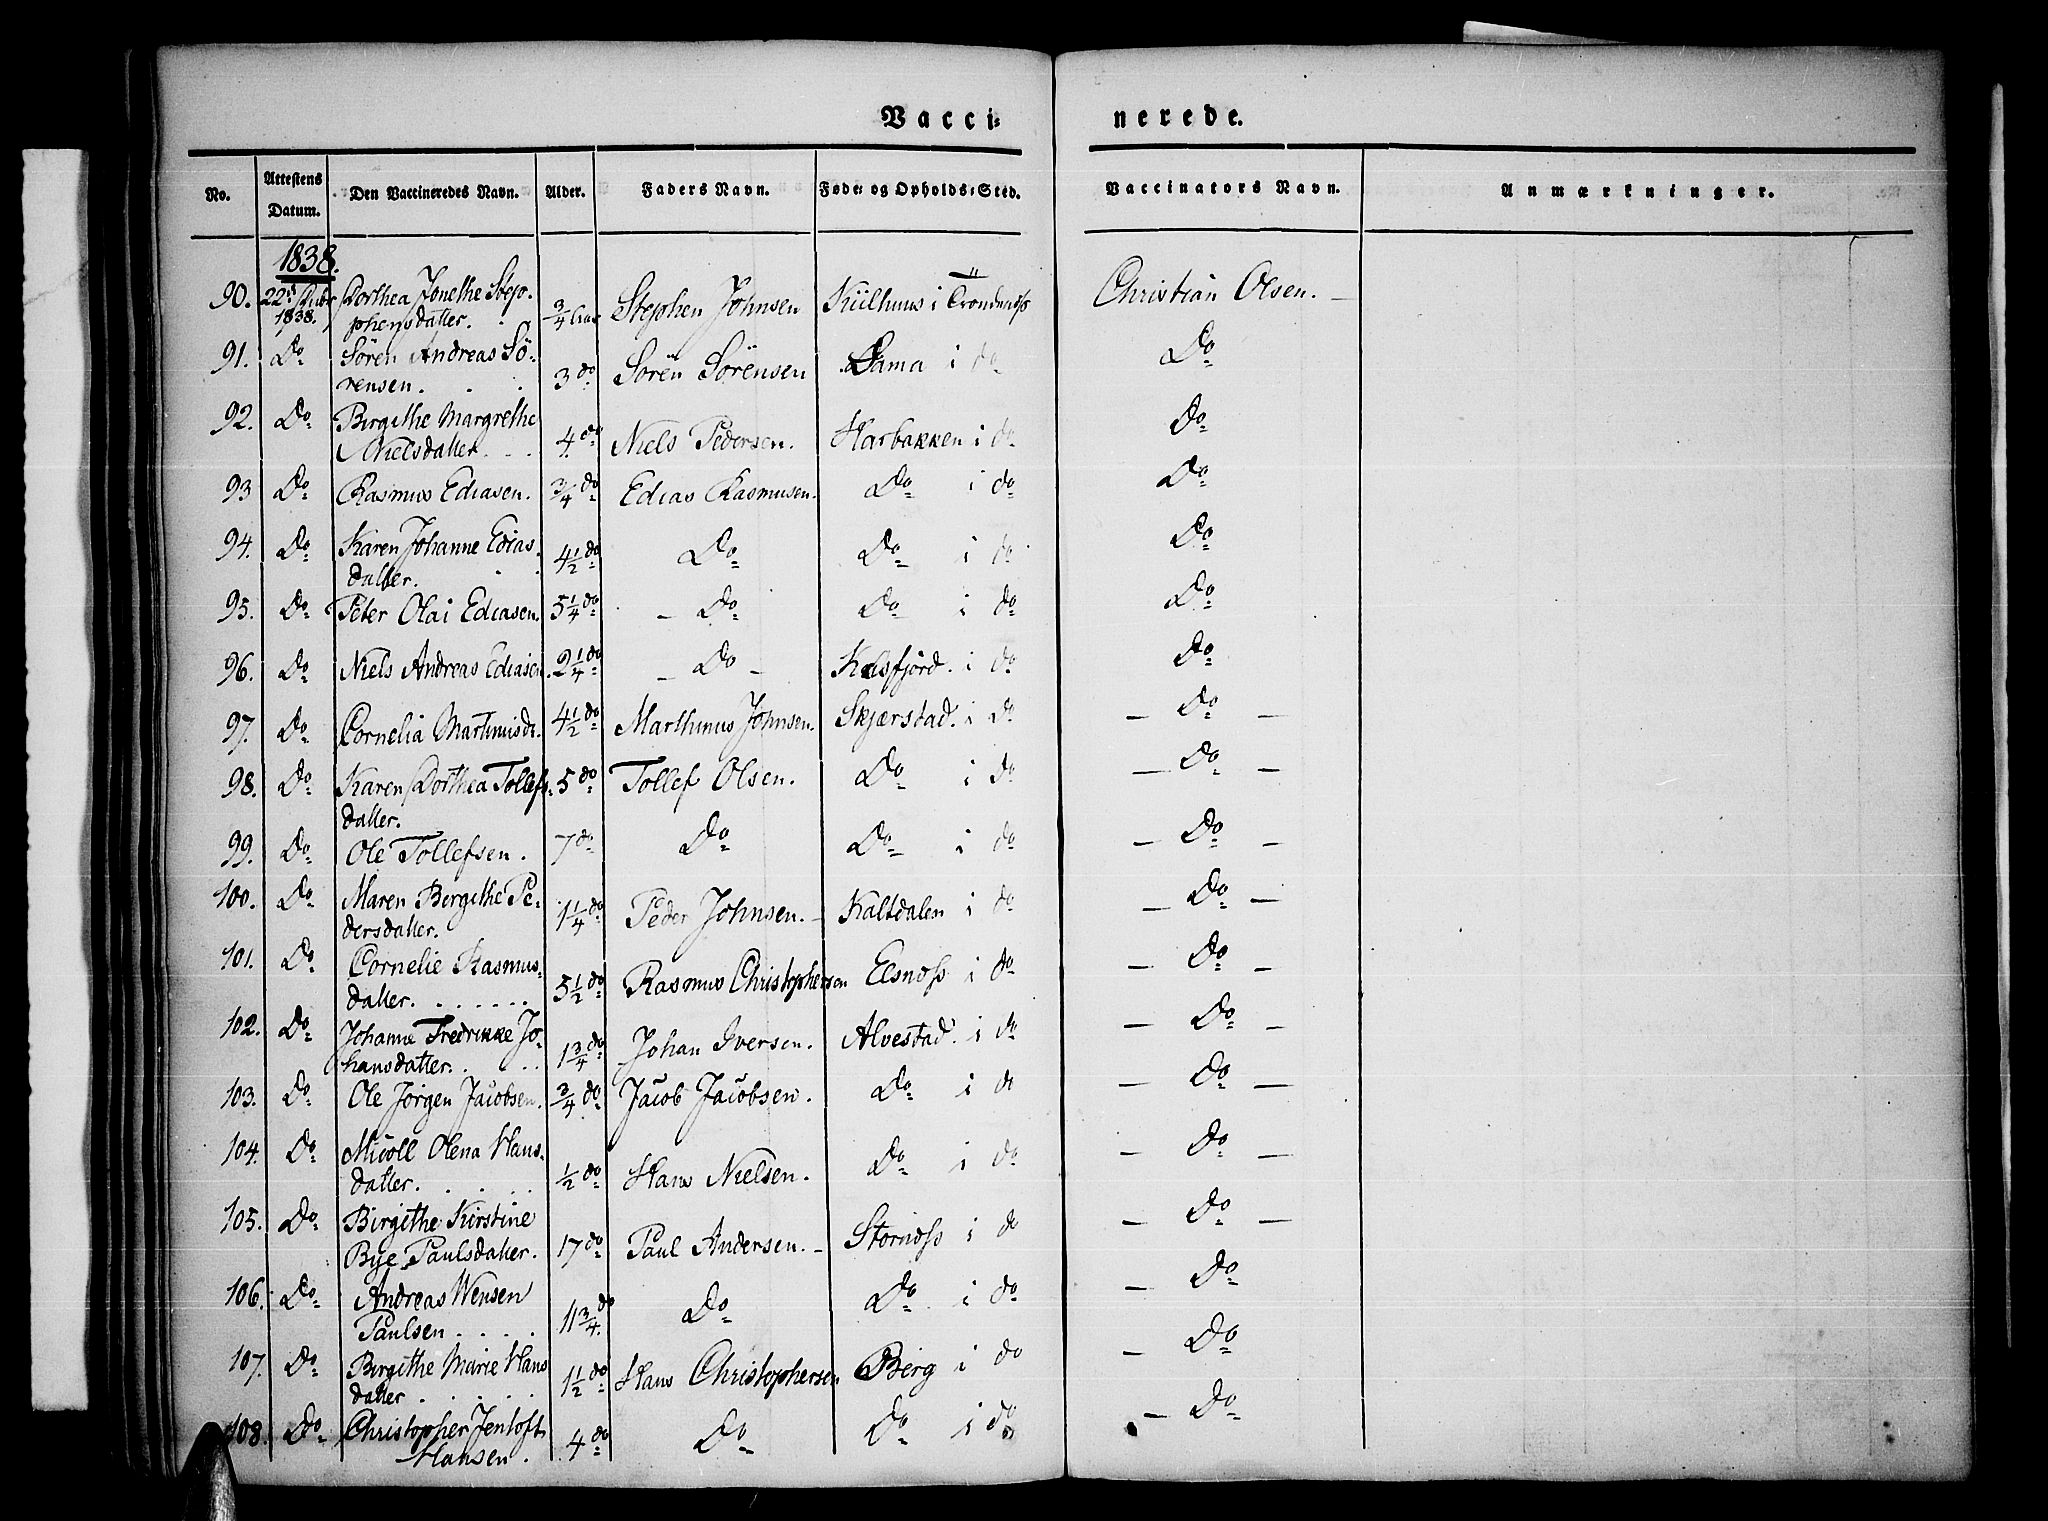 Vacci-nerede.
No. Attestens Datum. Den Vaccineredes Navn. Alder. Faders Navn. Føde- og Opholds-Sted. Vaccinators Navn. Anmærkninger.
1838.
90. 22de 1838. Dorthea Jonethe Stephensdatter. 3/4 Aar Stephen Johnsen i Trondenæss Christian Olsen.
91. Do Sören Andreas Sörensen. 3 do Sören Sörensen Sama i do Do
92. Do Birgithe Margrethe Nielsdatter. 4 do Niels Pedersen. Harbakken i do Do
93 Do Rasmus Ediasen. 3/4 do Edias Rasmusen. Do i do Do
94. Do Karen Johanne Ediasdatter. 4 1/2 do Do Do i do Do
95. Do Peter Olai Ediasen. 5 1/4 do Do Do i do Do
96. Do Niels Andreas Ediasen. 2 1/4 do Do Kasfjord. i do Do
97. Do Cornelia Martinusdr. 4 1/2 do Marthinus Johnsen. Skjærstad. i do Do
98. Do Karen Dorthea Tollefsdatter. 5 do Tollef Olsen. Do i do Do
99. Do Ole Tollefsen. 7 do Do Do i do Do
100. Do Maren Bergithe Pedersdatter. 1 1/4 do Peder Johnsen. Kaltdalen i do Do
101. Do Cornelie Rasmusdatter. 5 1/2 do Rasmus Christophersen Elsnæss i do Do
102. Do Johanne Fredrikke Johansdatter. 1 3/4 do Johan Iversen. Alvestad. i do Do
103. Do Ole Jörgen Jacobsen. 3/4 do Jacob Jacobsen. Do i do Do
104. Do Olena Hansdatter. 1/2 do Hans Nielsen. Do i do Do
105. Do Birgithe Kirstine Bye Paulsdatter. 17 do Paul Andersen. Stornæss i do Do
106. Do Andreas Wensen Paulsen 11 3/4 do Do Do i do Do
107. Do Birgithe Marie Hansdatter 1 1/2 do Hans Christophersen Berg i do Do
108. Do Christopher Jentoft Hansen. 4 do Do Do i do Do